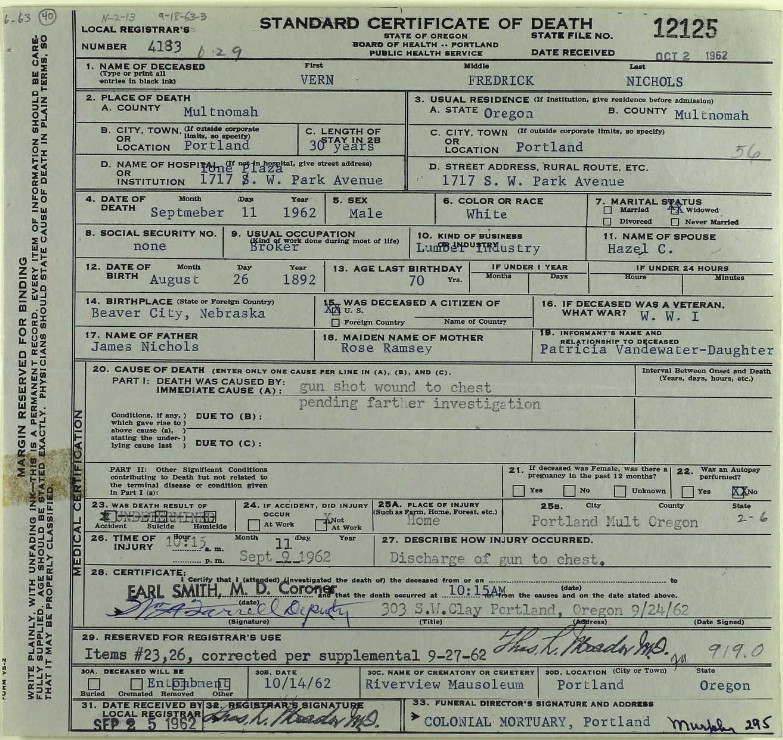 6-63 40 N-2-13 9-18-63-3
STANDARD CERTIFICATE OF DEATH
LOCAL REGISTRAR'S
NUMBER 4183 629
STATE OF OREGON
BOARD OF HEALTH -- PORTLAND
PUBLIC HEALTH SERVICE
STATE FILE NO. 12125
DATE RECEIVED OCT 2 1962
1. NAME OF DECEASED First Middle Last
(Type or print all
entries in black ink) VERN FREDRICK NICHOLS
2. PLACE OF DEATH
A. COUNTY Multnomah
3. USUAL RESIDENCE (If Institution, give residence before admission)
A. STATE Oregon B. COUNTY Multnomah
B. CITY, TOWN, (If outside corporate
OR limits, so specify)
LOCATION Portland
C. LENGTH OF
STAY IN 2B
30 years
C. CITY, TOWN (If outside corporate
OR limits, so specify)
LOCATION Portland
56
D. NAME OF HOSPITAL (If not in hospital, give street address)
OR Ione Plaza
INSTITUTION 1717 S. W. Park Avenue
D. STREET ADDRESS, RURAL ROUTE, ETC.
1717 S. W. Park Avenue
4. DATE OF Month Day Year
DEATH Septmeber 11 1962
5. SEX
Male
6. COLOR OR RACE
White
7. MARITAL STATUS
Married XX Widowed
Divorced Never Married
8. SOCIAL SECURITY NO.
none
9. USUAL OCCUPATION
(Kind of work done during most of life)
Broker
10. KIND OF BUSINESS
OR INDUSTRY
Lumber Industry
11. NAME OF SPOUSE
Hazel C.
12. DATE OF Month Day Year
BIRTH August 26 1892
13. AGE LAST BIRTHDAY
70 Yrs.
IF UNDER 1 YEAR
Months Days
IF UNDER 24 HOURS
Hours Minutes
14. BIRTHPLACE (State or Foreign Country)
Beaver City, Nebraska
15. WAS DECEASED A CITIZEN OF
XX U. S.
Foreign Country Name of Country
16. IF DECEASED WAS A VETERAN,
WHAT WAR? W. W. I
17. NAME OF FATHER
James Nichols
18. MAIDEN NAME OF MOTHER
Rose Ramsey
19. INFORMANT'S NAME AND
RELATIONSHIP TO DECEASED
Patricia Vandewater-Daughter
MEDICAL CERTIFICATION
20. CAUSE OF DEATH (ENTER ONLY ONE CAUSE PER LINE IN (A), (B), AND (C).
Interval Between Onset and Death
(Years, days, hours, etc.)
PART I: DEATH WAS CAUSED BY:
IMMEDIATE CAUSE (A): gun shot wound to chest
pending farther investigation
Conditions, if any, )
which gave rise to )
above cause (a), )
stating the under- )
lying cause last )
DUE TO (B):
DUE TO (C):
PART II: Other Significant Conditions
contributing to Death but not related to
the terminal disease or condition given
in Part I (a):
21. If deceased was Female, was there a
pregnancy in the past 12 months?
Yes No Unknown
22. Was an Autopsy
performed?
Yes XX No
23. WAS DEATH RESULT OF
Accident Suicide Homicide
24. IF ACCIDENT, DID INJURY
OCCUR
At Work X Not
At Work
25A. PLACE OF INJURY
(Such as Farm, Home, Forest, etc.)
Home
25B. City County State
Portland Mult Oregon 2-6
26. TIME OF Hour Month Day Year
INJURY 10:15 a. m. 11
p. m. Sept 9 1962
27. DESCRIBE HOW INJURY OCCURRED.
Discharge of gun to chest.
28. CERTIFICATE:
I Certify that I (attended) (investigated the death of) the deceased from or on to
EARL SMITH, M. D. Coroner and that the death occurred at 10:15AM from the causes and on the date stated above.
(date) (date)
Deputy 303 S.W.Clay Portland, Oregon 9/24/62
(Signature) (Title) (Address) (Date Signed)
29. RESERVED FOR REGISTRAR'S USE
Items #23,26, corrected per supplemental 9-27-62 Thos. L. Meador M.D. 919.0
30A. DECEASED WILL BE
Entombment
Buried Cremated Removed Other
30B. DATE
10/14/62
30C. NAME OF CREMATORY OR CEMETERY
Riverview Mausoleum
30D. LOCATION (City or Town) State
Portland Oregon
31. DATE RECEIVED BY
LOCAL REGISTRAR
SEP 25 1962
32. REGISTRAR'S SIGNATURE
Thos. L. Meador M.D.
33. FUNERAL DIRECTOR'S SIGNATURE AND ADDRESS
COLONIAL MORTUARY, Portland Murphy 295
MARGIN RESERVED FOR BINDING
WRITE PLAINLY, WITH UNFADING INK—THIS IS A PERMANENT RECORD. EVERY ITEM OF INFORMATION SHOULD BE CARE-
FULLY SUPPLIED. AGE SHOULD BE STATED EXACTLY. PHYSICIANS SHOULD STATE CAUSE OF DEATH IN PLAIN TERMS, SO
THAT IT MAY BE PROPERLY CLASSIFIED.
FORM VS-2